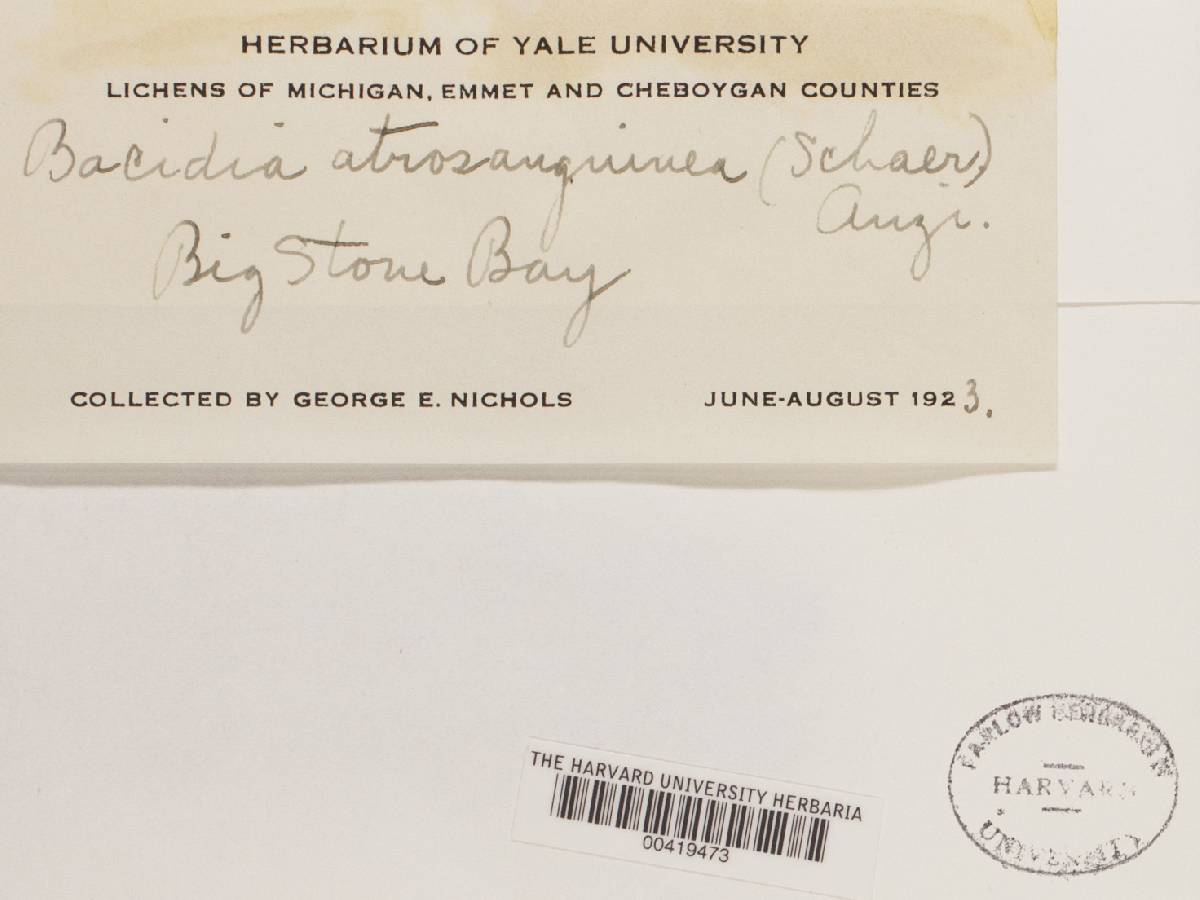 HERBARIUM OF YALE UNIVERSITY
LICHENS OF MICHIGAN, EMMET AND CHEBOYGAN COUNTIES
Bacidia atrosanguinea (Schaer.)
Anzi.
Big Stone Bay
COLLECTED BY GEORGE E. NICHOLS JUNE-AUGUST 1923.
THE HARVARD UNIVERSITY HERBARIA
00419473
FARLOW HERBARIUM
HARVARD
UNIVERSITY